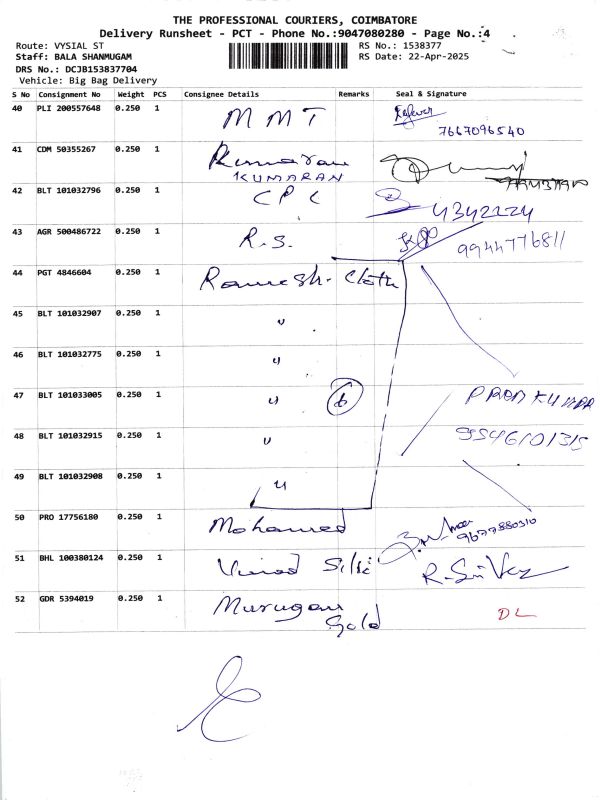 THE PROFESSIONAL COURIERS, COIMBATORE
Delivery Runsheet - PCT - Phone No.:9047080280 - Page No.:4
Route: VYSIAL ST
RS No.: 1538377
Staff: BALA SHANMUGAM
RS Date: 22-Apr-2025
DRS No.: DCJB153837704
Vehicle: Big Bag Delivery
S No Consignment No Weight PCS Consignee Details Remarks Seal & Signature
40 PLI 200557648 0.250 1 MMT 7667096540
41 CDM 50355267 0.250 1 Kumaran
KUMARAN
42 BLT 101032796 0.250 1 CPC 4342224
43 AGR 500486722 0.250 1 R.S. 9944776811
44 PGT 4846604 0.250 1 Ramesh. Cloth
45 BLT 101032907 0.250 1 "
46 BLT 101032775 0.250 1 "
47 BLT 101033005 0.250 1 " 6 PREM KUMAR
48 BLT 101032915 0.250 1 "
49 BLT 101032908 0.250 1 "
50 PRO 17756180 0.250 1 Mohamed 9677880310
51 BHL 100380124 0.250 1 Vinod Silk
52 GDR 5394019 0.250 1 Murugan
Gold DL